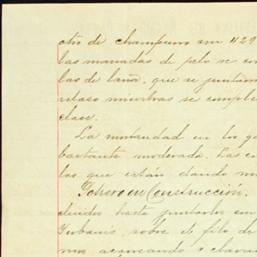 otro de champurro en 1129
las manadas de pelo se con
las de lana, que se juntaron
retazo mientras se comple
clase.
La mortandad en los ga
bastante moderada. Las ca
los que están dando más
Potrero en Construcción.
didos hasta juntarlos con
Turbaris, sobre el filo de
nos, acercando